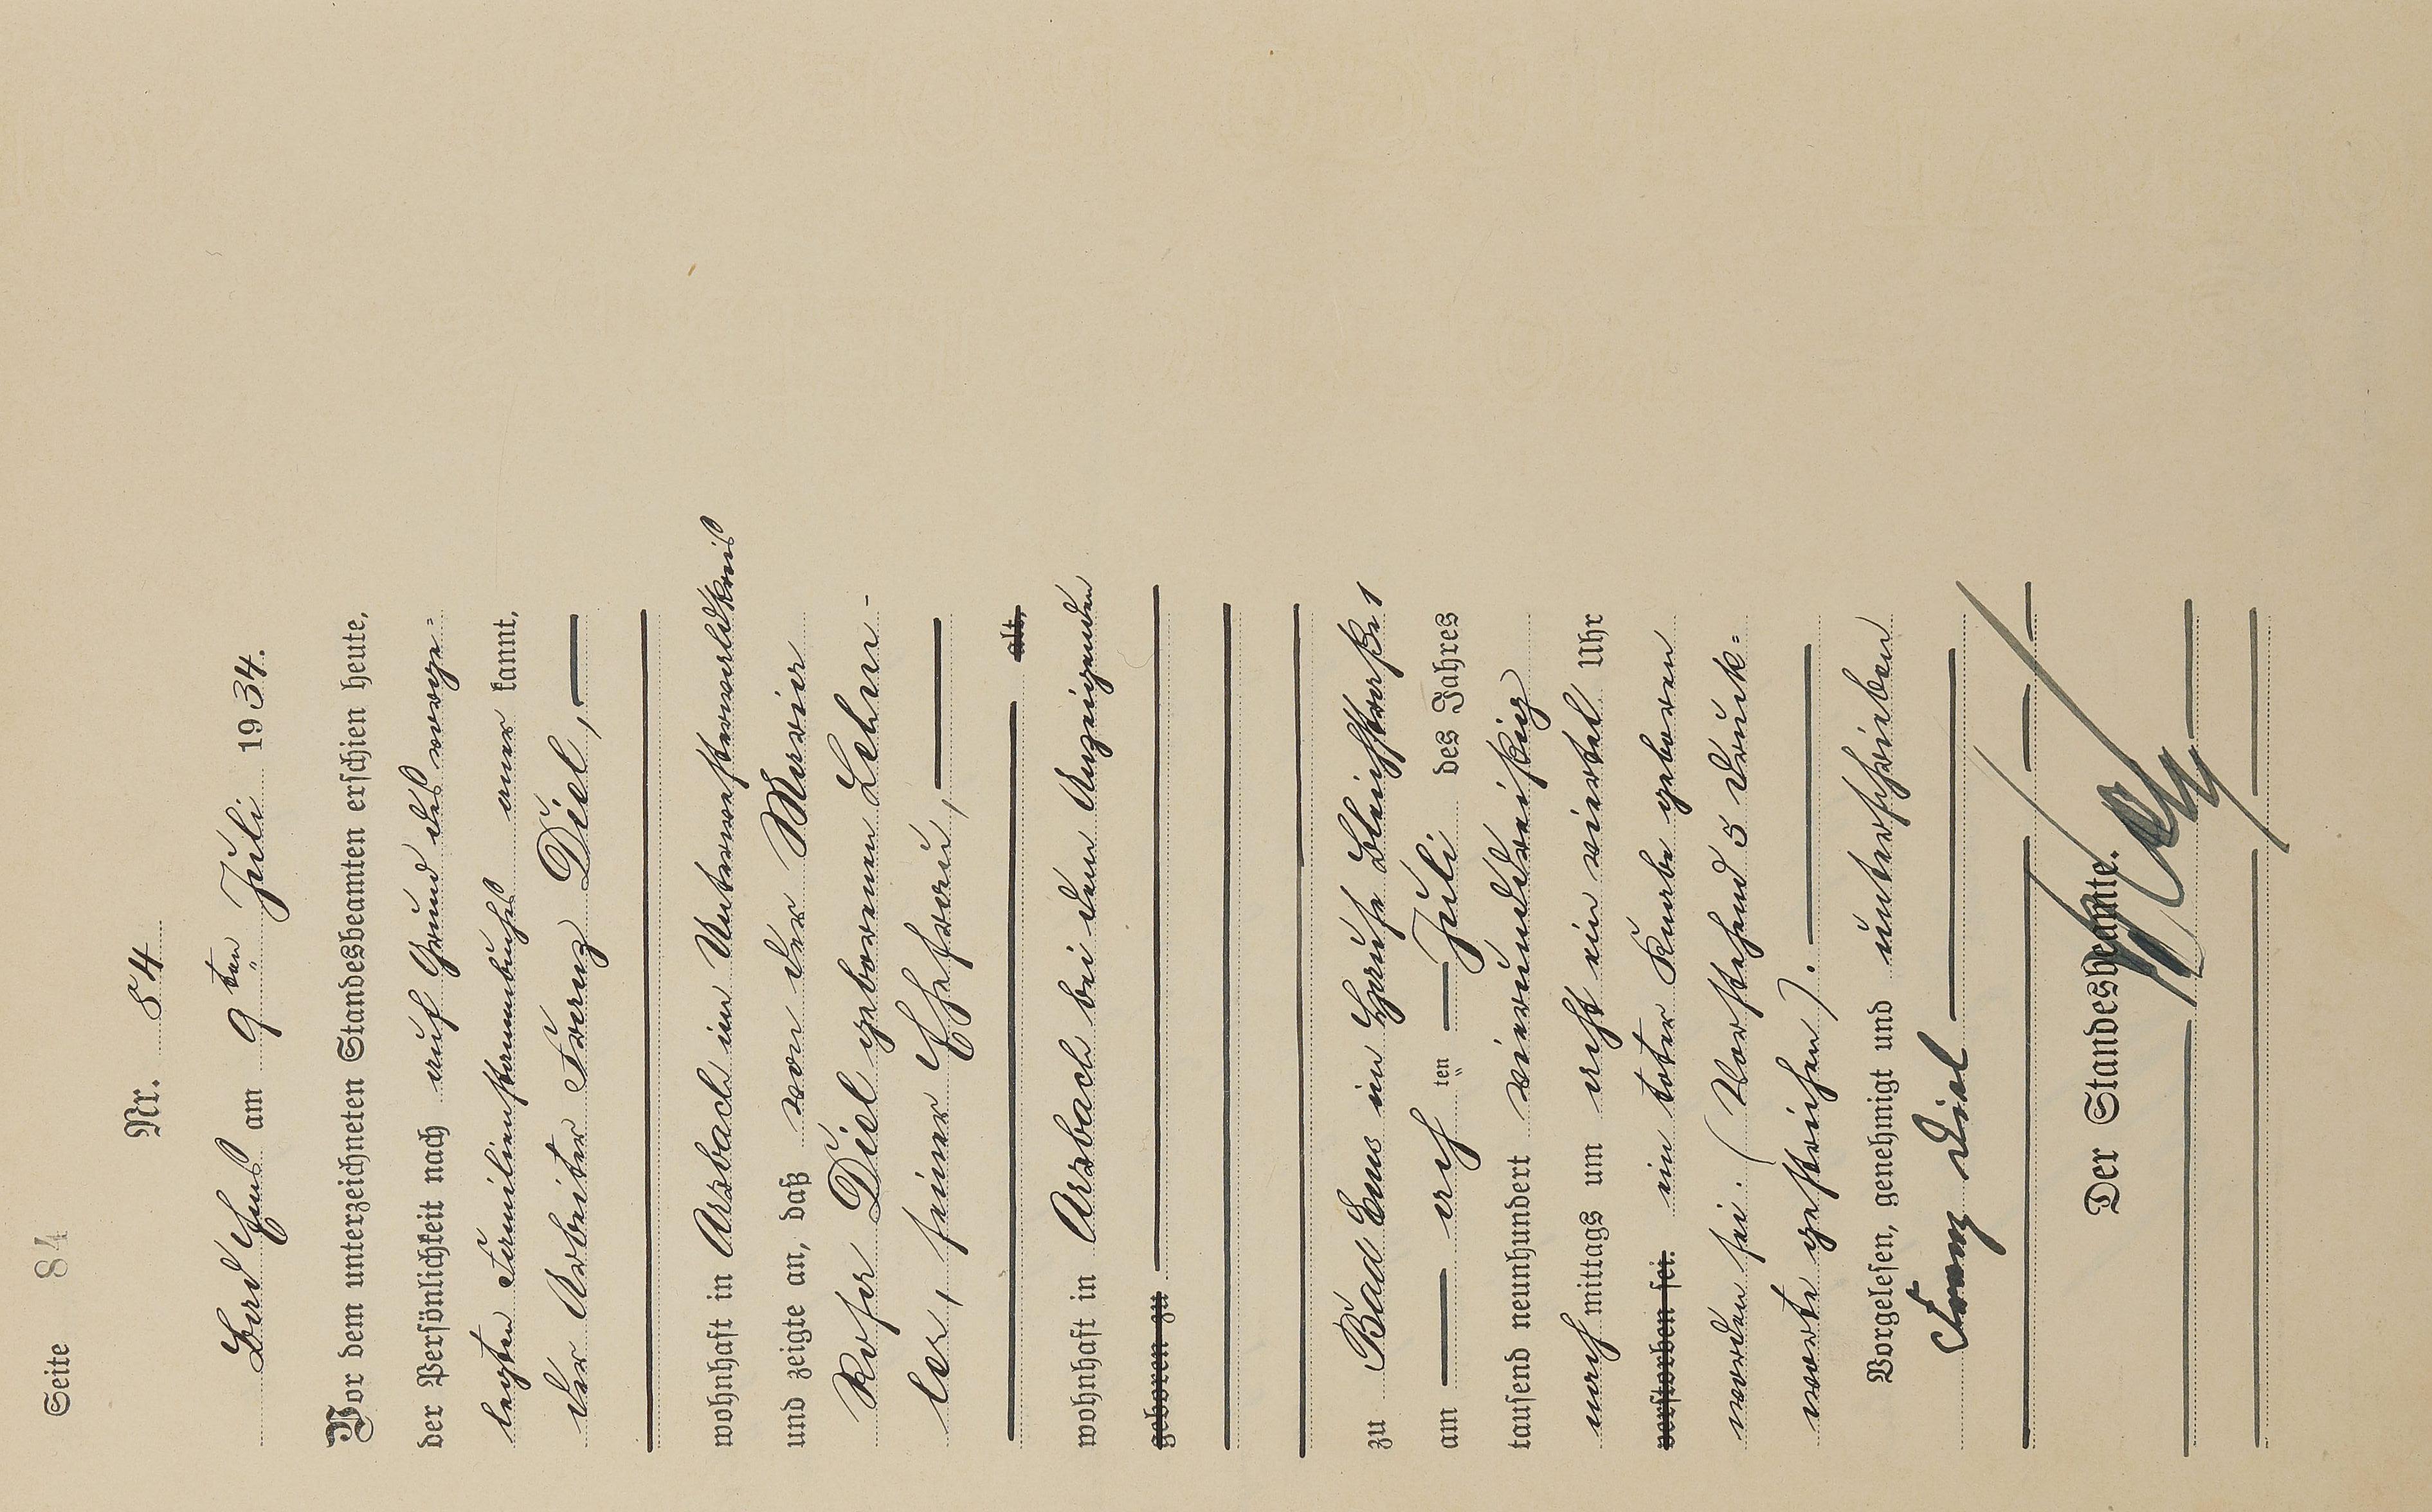 Seite 84
Nr. 84
Bad Ems am 9ten Juli 1934.
Vor dem unterzeichneten Standesbeamten erschien heute,
der Persönlichkeit nach auf Grund des vorge=
legten Familienstammbuches aner kannt,
der Arbeiter Franz Diel,
wohnhaft in Arzbach im Unterwesterwaldkreis
und zeigte an, daß von der Maria
Rosa Diel geborenen Lehm-
ler, seiner Ehefrau,
alt,
wohnhaft in Arzbach bei dem Anzeigenden
geboren zu
zu Bad Ems im Hause Bleichstraße 1
am acht ten Juli des Jahres
tausend neunhundert vierunddreißig
nach mittags um acht ein viertel Uhr
verstorben sei. ein toter Knabe geboren
worden sei. (Vorstehend 5 Druck=
worte gestrichen).
Vorgelesen, genehmigt und unterschrieben
Franz Diel
Der Standesbeamte.